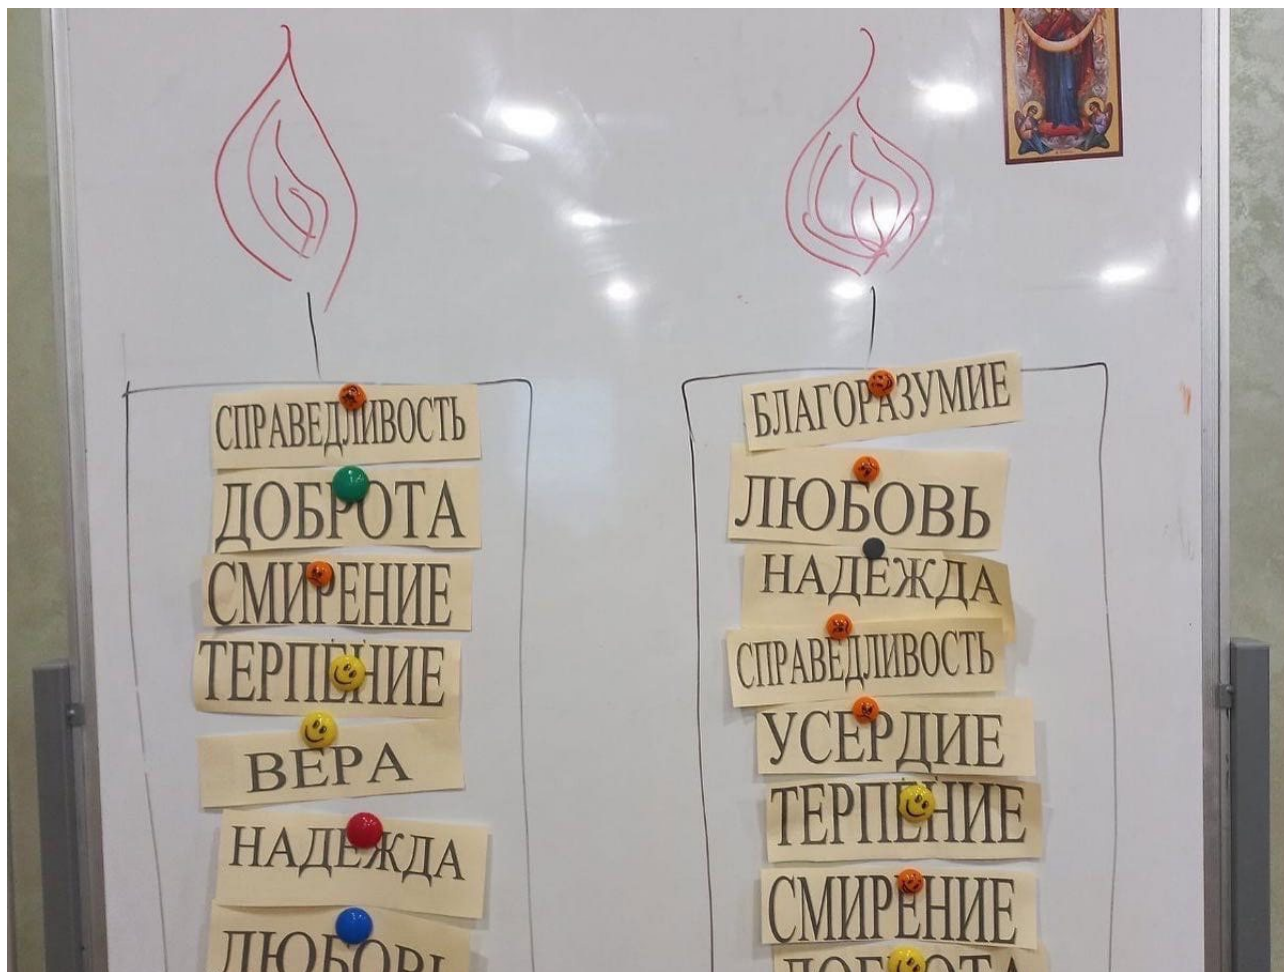 СПРАВЕДЛИВОСТЬ
ДОБРОТА
СМИРЕНИЕ
ТЕРПЕНИЕ
ВЕРА
НАДЕЖДА
ЛЮБОВЬ
БЛАГОРАЗУМИЕ
ЛЮБОВЬ
НАДЕЖДА
СПРАВЕДЛИВОСТЬ
УСЕРДИЕ
ТЕРПЕНИЕ
СМИРЕНИЕ
ДОБРОТА